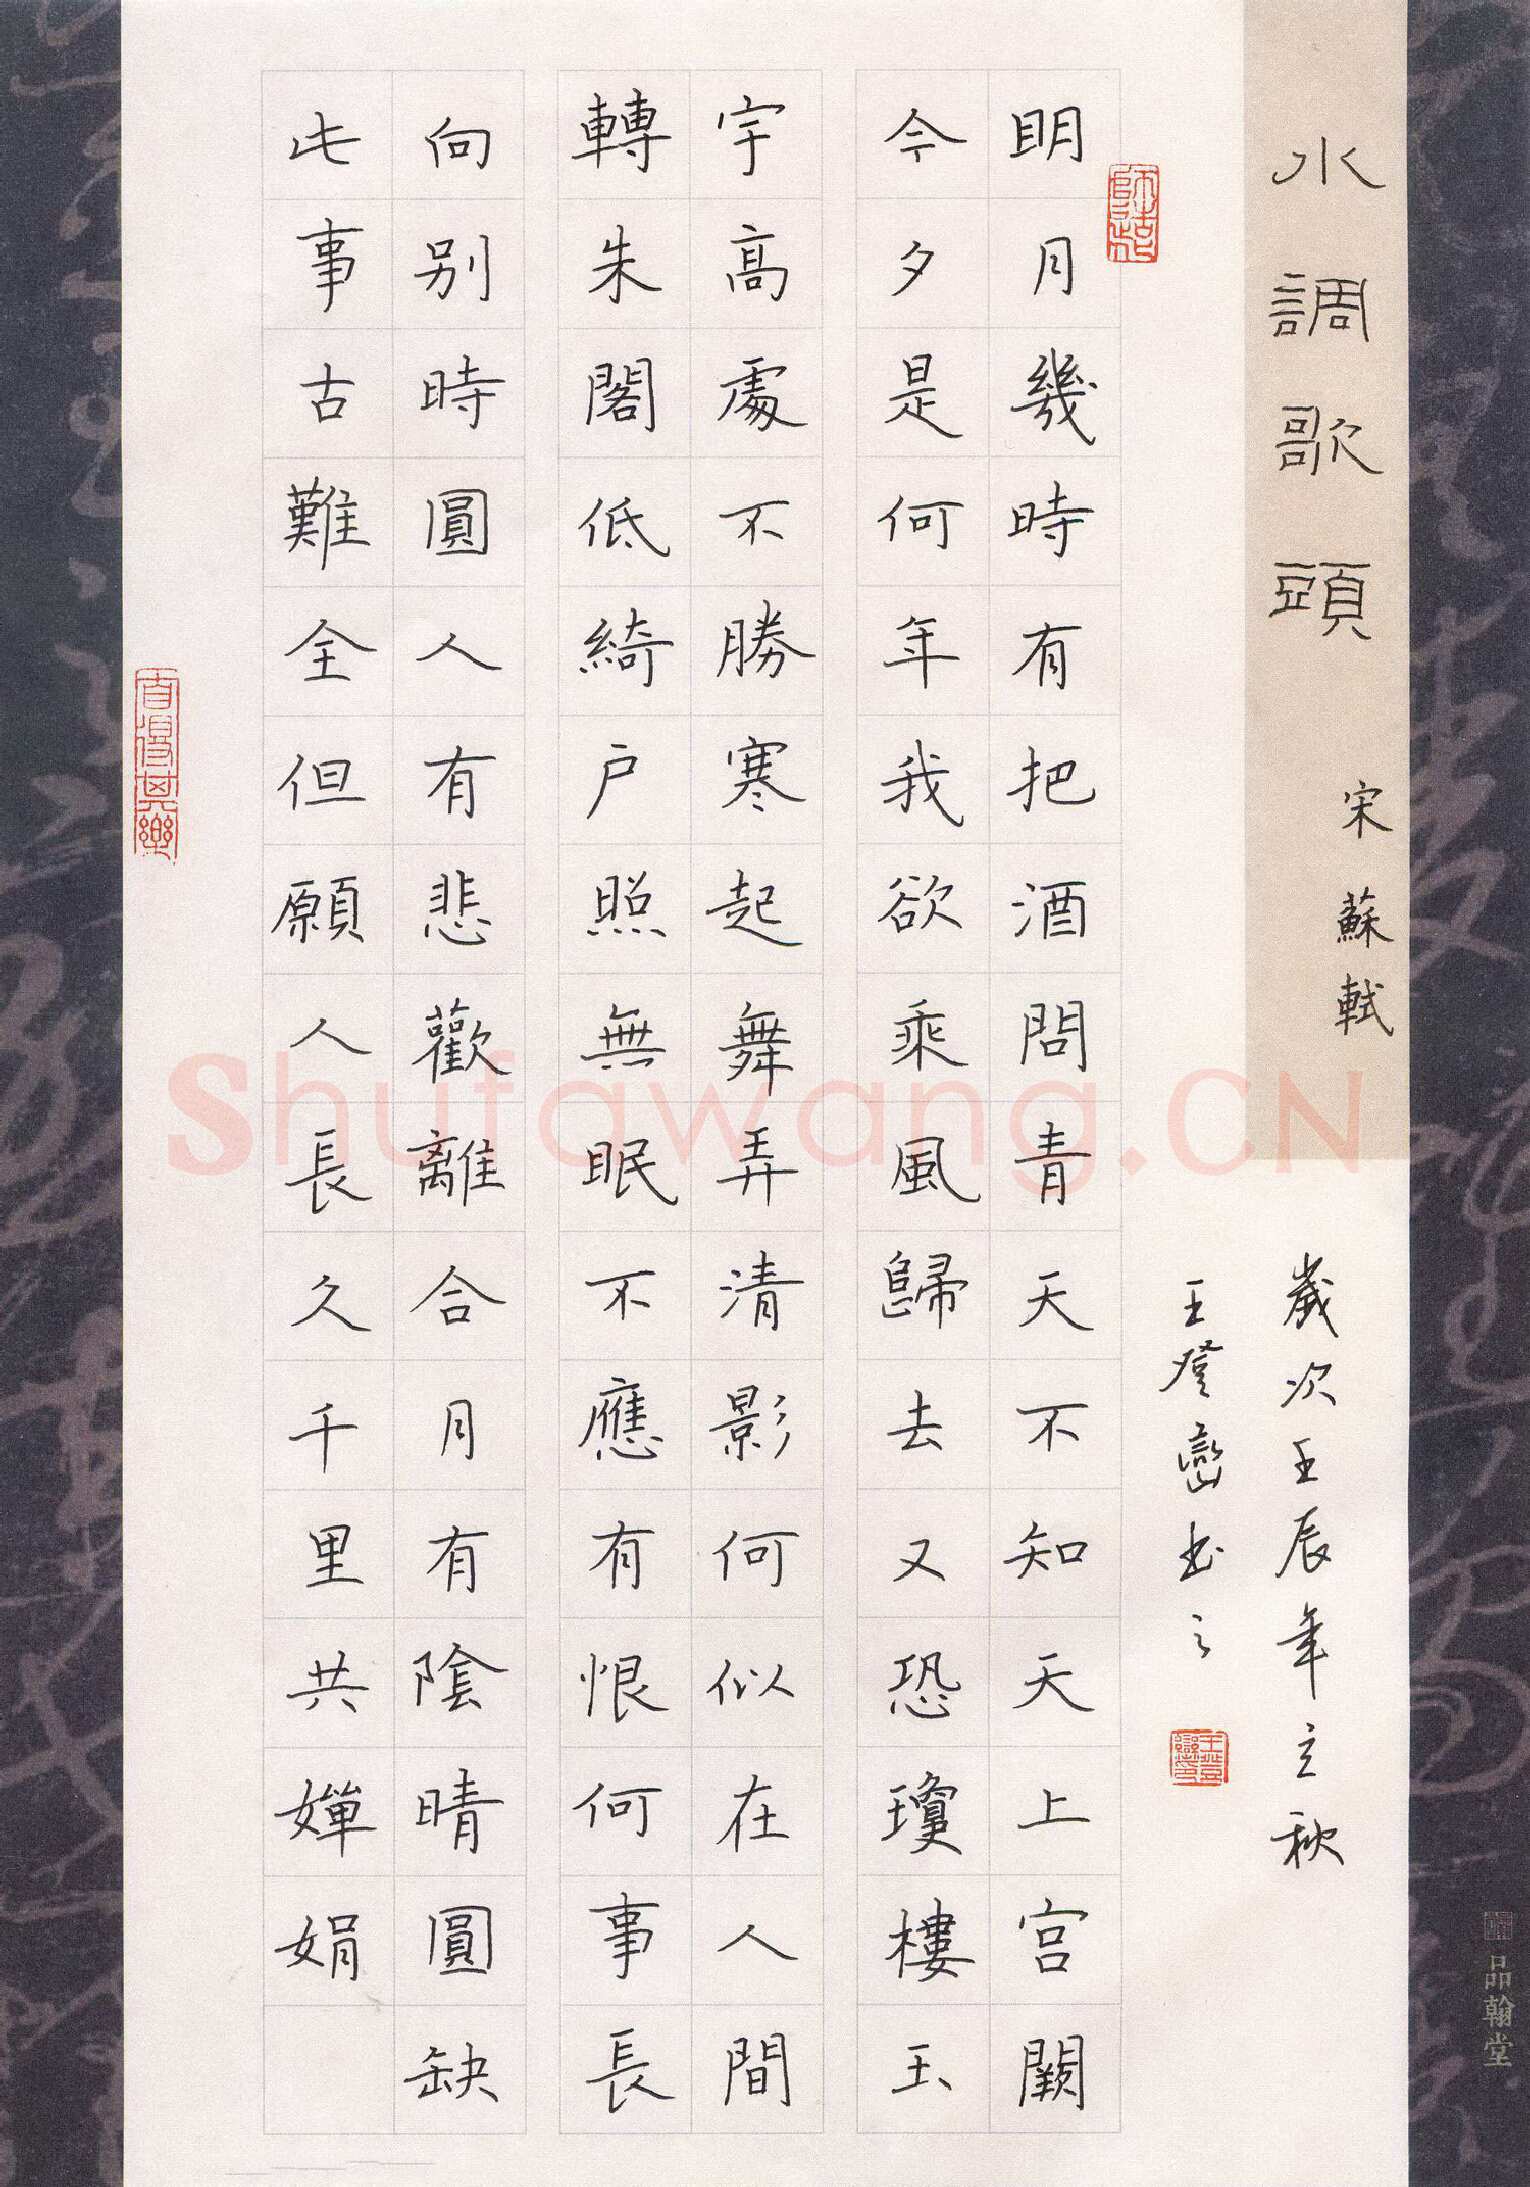 水調歌頭
宋 蘇軾
歲次壬辰年立秋
王登巒书之
明月幾時有把酒問青天不知天上宫闕
今夕是何年我欲乘風歸去又恐瓊樓玉
宇高處不勝寒起舞弄清影何似在人間
轉朱閣低綺户照無眠不應有恨何事長
向别時圓人有悲歡離合月有陰晴圓缺
此事古難全但願人長久千里共嬋娟
品翰堂
Shufawang.CN